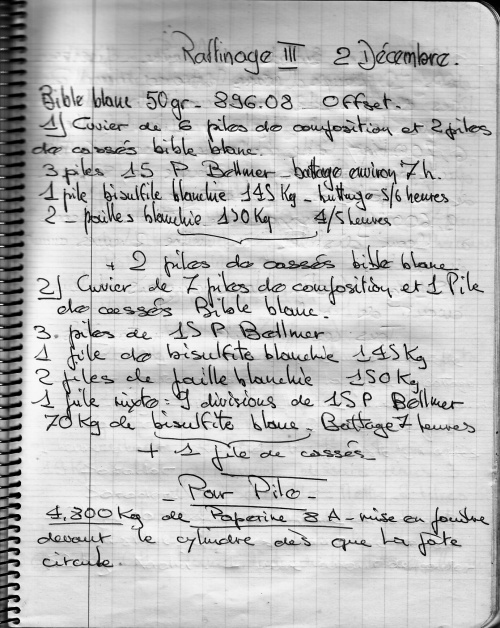 Raffinage III 2 Décembre.
Bible blanc 50gr - 896.08 Offset.
1) Cuvier de 6 piles de composition et 2 piles
de cassés bible blanc.
3 piles 15 P Bellmer - battage environ 7h.
1 pile bisulfite blanchie 145 Kg - battage 5/6 heures
2 - pailles blanchie 150 Kg 4/5 heures
+ 2 piles de cassés bible blanc
2) Cuvier de 7 piles de composition et 1 Pile
de cassés Bible blanc.
3. piles de 15 P Bellmer
1 pile de bisulfite blanchie 145 Kg
2 piles de paille blanchie 150 Kg
1 pile mixte : 9 divisions de 15 P Bellmer
70 Kg de bisulfite blanc - Battage 7 heures
+ 1 pile de cassés -
- Pour Pile -
4,800 Kg de Paperine 8 A - mise en poudre
devant le cylindre dès que la pâte
circule.